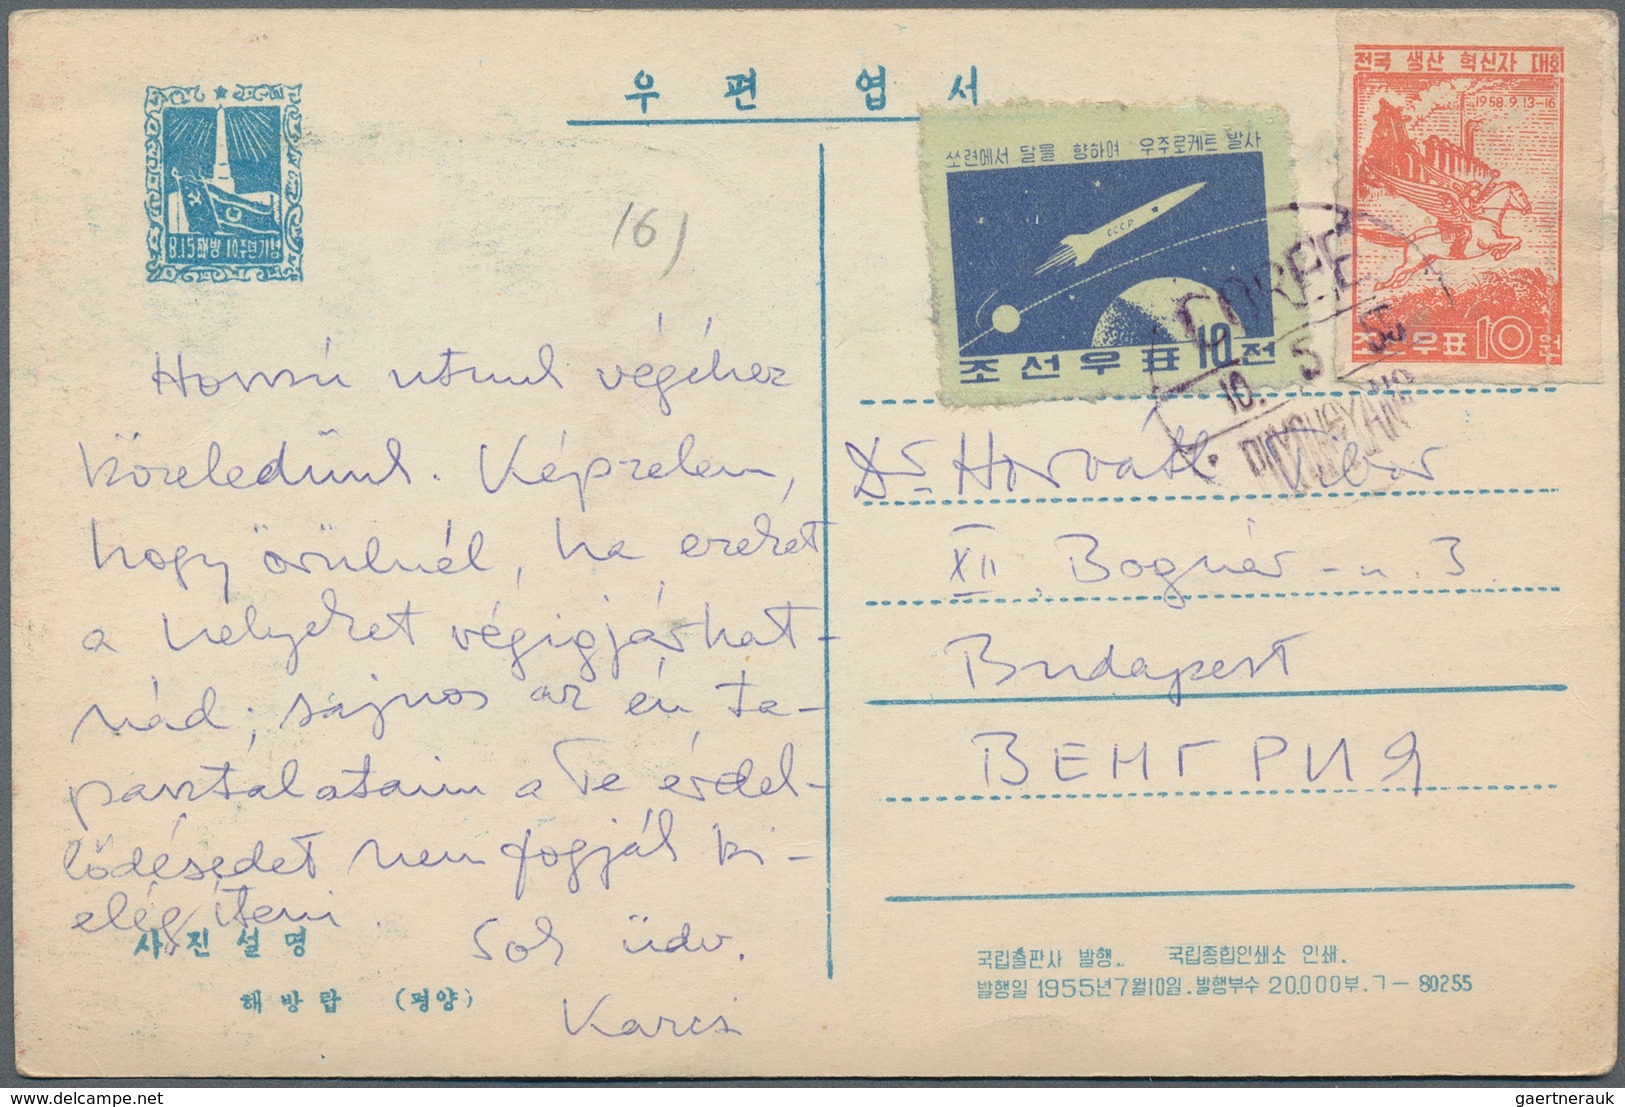 우편엽서
8.15해방 10주년기념
16)
쏘련에서 달을 향하여 우주로케트 발사
CCCP
조선우표 10전
전국 생산 혁신자 대회
1958.9.13-16
조선우표 10원
COREE
10. 5. 5
Hosszú utunk végéhez
közeledünk. Képzelem,
hogy örülnél, ha ezeket
a helyeket végigjárhat-
nád; sajnos az én ta-
pasztalataim a Te érdek-
lődésedet nem fogják ki-
elégíteni.
Sok üdv.
Karcs
Dr Horváth Tibor
XII. Bognár-u. 3.
Budapest
ВЕНГРИЯ
사진설명
해방탑 (평양)
국립출판사 발행.. 국립종합인쇄소 인쇄.
발행일 1955년7월10일. 발행부수 20.000부. ㄱ— 80255
gaertnerauk